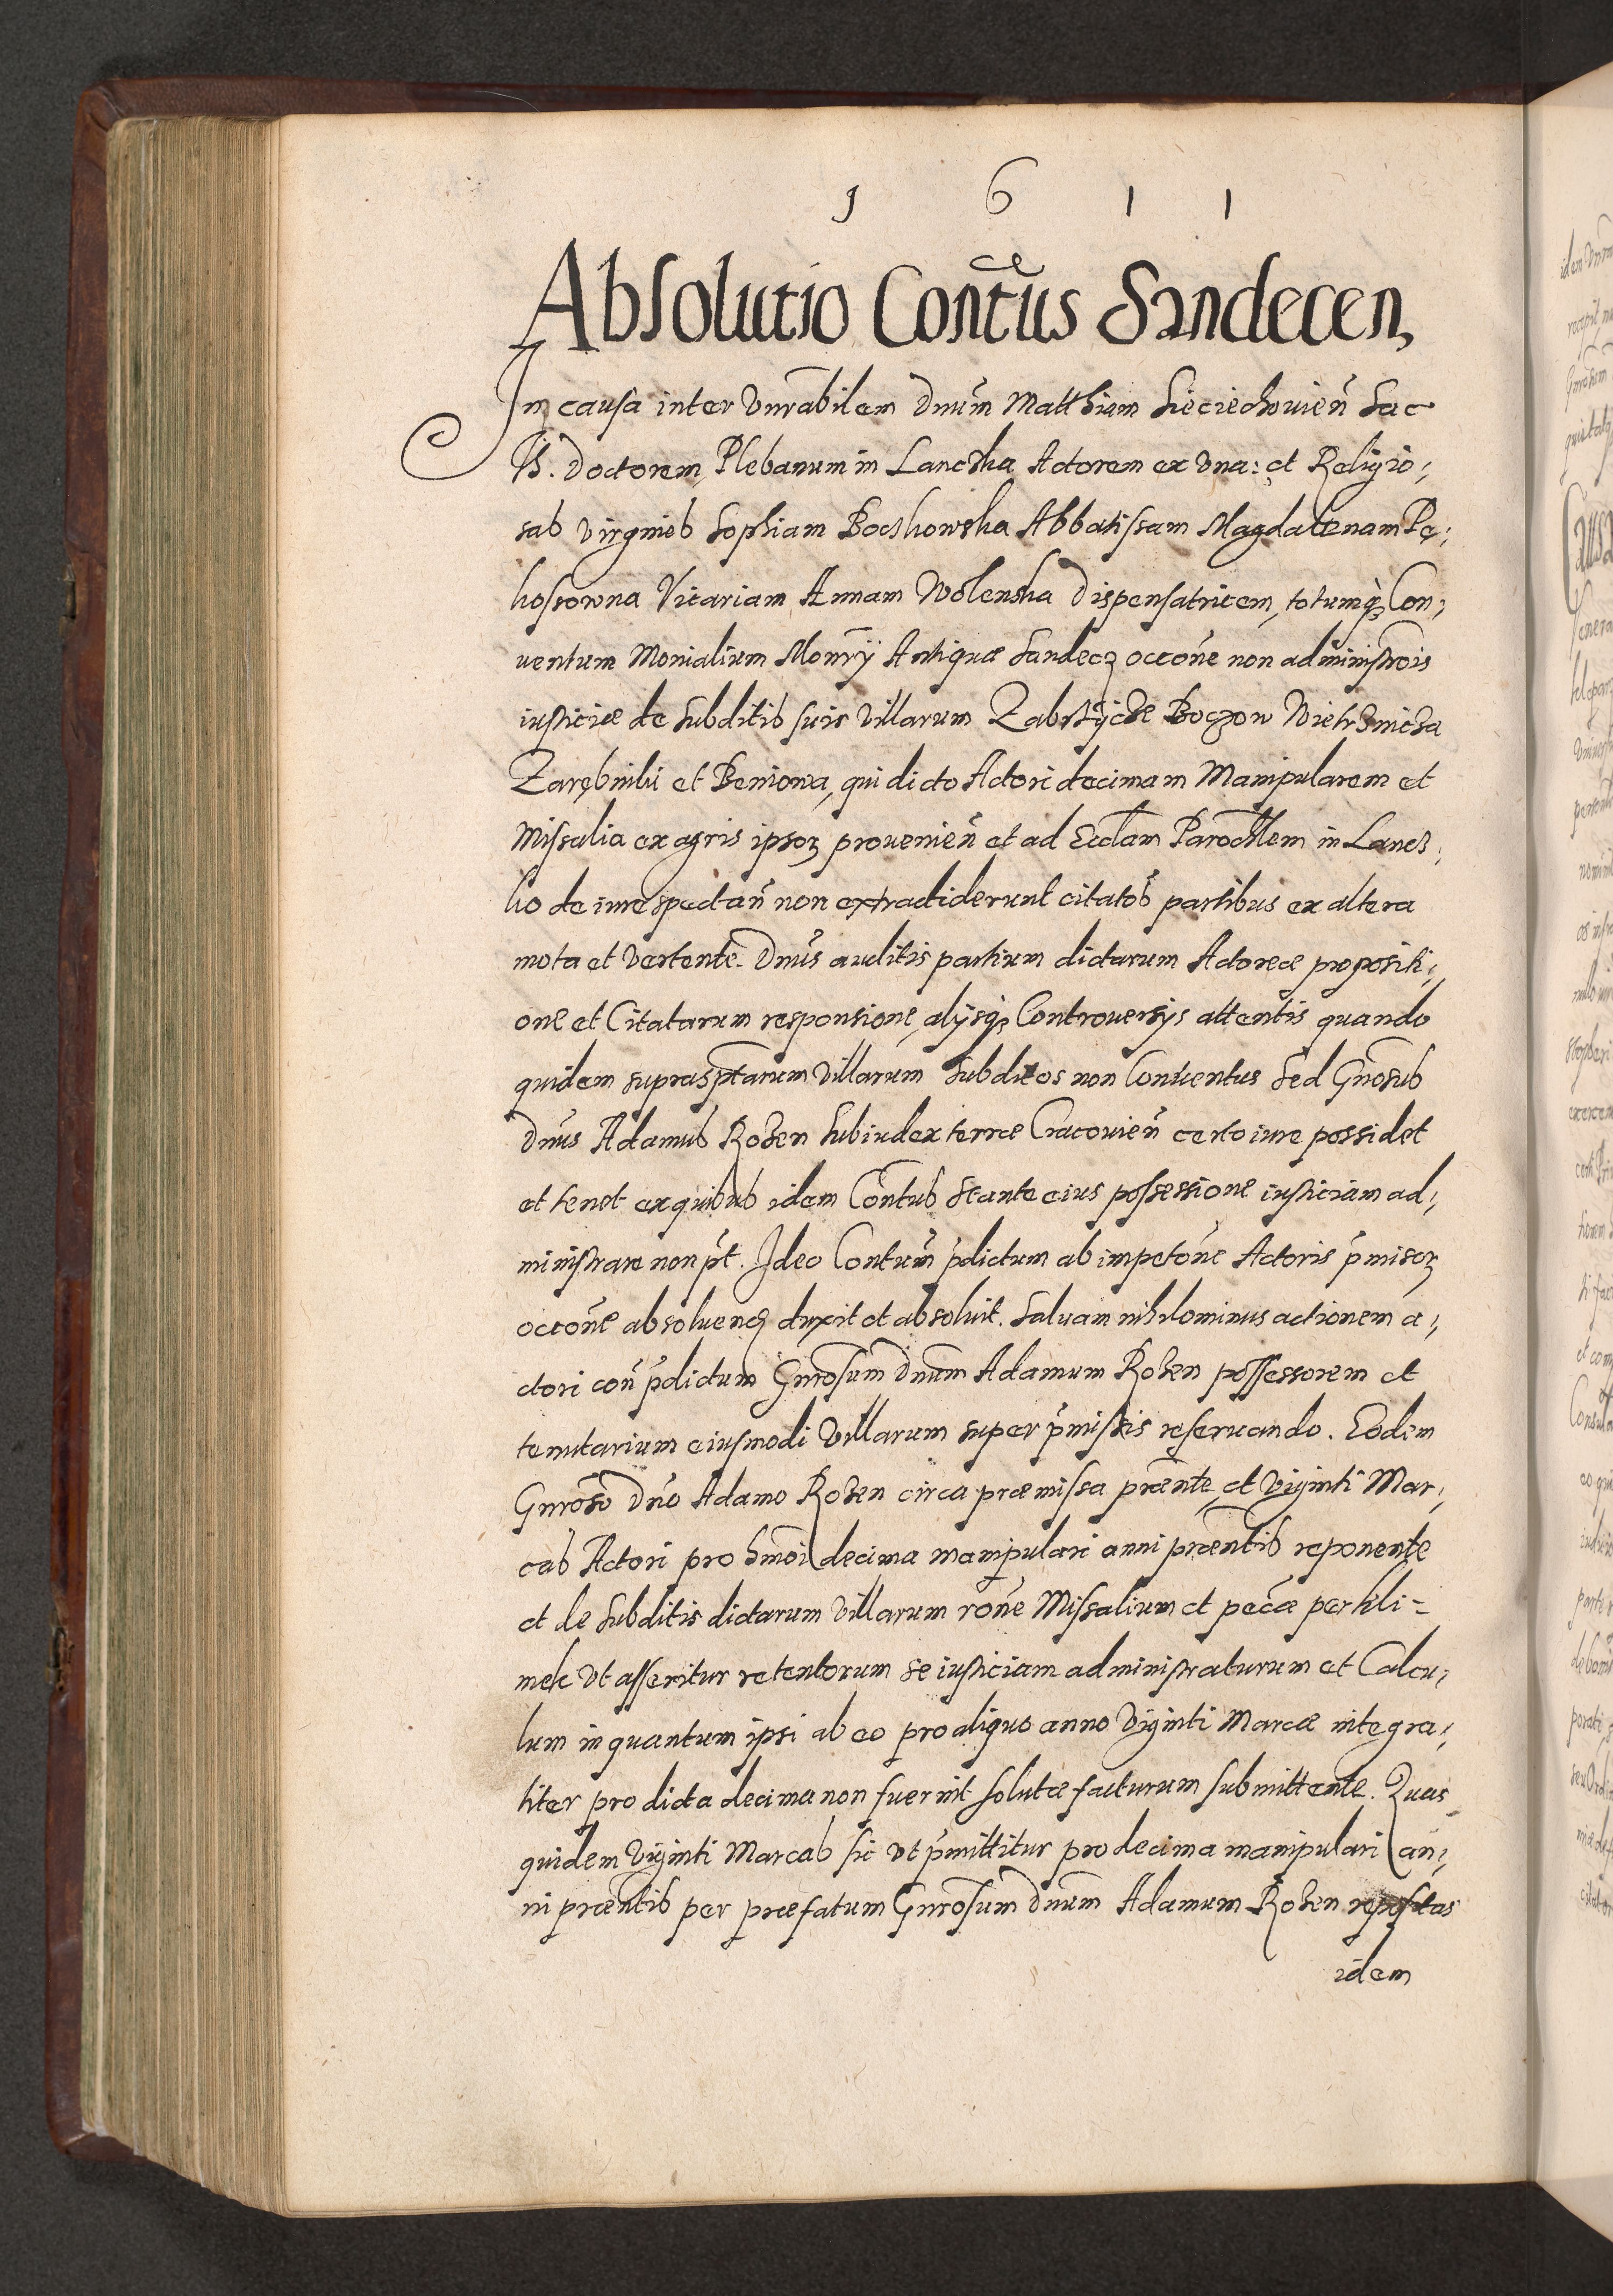 1 6 1 1
Absolutio Contūs Sandecen,
In causa inter Vnrabilem Dnum Matthiam Sieciechouien̄ Sac
Th. Doctorem, Plebanum in Lanczka Actorem ex vna: et Religio,
sas virgines Sophiam Boczkowska Abbatissam Magdalenam Pę,
kosrowna Vicariam Annam Wolenska Dispensatricem, totumq; Con,
uentum Monialium Monrÿ Antiquæ Sandecz occōne non administrōis
iusticiæ de Subditis suis villarum Zabrzÿcze Boczow Wietrznicza
Zarębniki et Beniowa, qui dicto Actori decimam Manipularem et
Missalia ex agris ipsoꝝ prouenien̄ et ad Ecclam Parochlem in Lancz,
ko de iure spectan̄ non extradiderunt citatos partibus ex altera
mota et vertente. Dnus auditis partium dictarum Actoreæ propositi,
one et Citatarum responsione, alÿsq; Controuersÿs attentis quando
quidem suprasptarum villarum Subditos non Conuentus Sed Gnosus
Dnus Adamus Rozen Subiudex terræ Cracouien̄ certo iure possidet
et tenet ex quibus idem Contus Stante eius possessione iusticiam ad,
ministrare non pt. Ideo Contum pdictum ab impetōne Actoris pmisoꝝ
occōne absoluend duxit et absoluit. Saluam nihilominus actionem a,
ctori con̄ pdictum Gnrosum Dnum Adamum Rozen possessorem et
tenutarium eiusmodi villarum super pmissis reseruando. Eodem
Gnroso Dno Adamo Rozen circa præmissa prænte et viginti Mar,
cas Actori pro hmoi decima manipulari anni præntis reponente
et de Subditis dictarum villarum rōne Missalium et pecæ per
mele vt asseritur retentorum se iusticiam administraturum et Calcu,
lum in quantum ipsi ab eo pro aliquo anno viginti Marcæ integra,
liter pro dicta decima non fuerint solutæ facturum submittente. Quas
quidem viginti Marcas sic vt pmittitur pro decima manipulari an,
ni præntis per præfatum Gnrosum Dnum Adamum Rozen repositas
idem